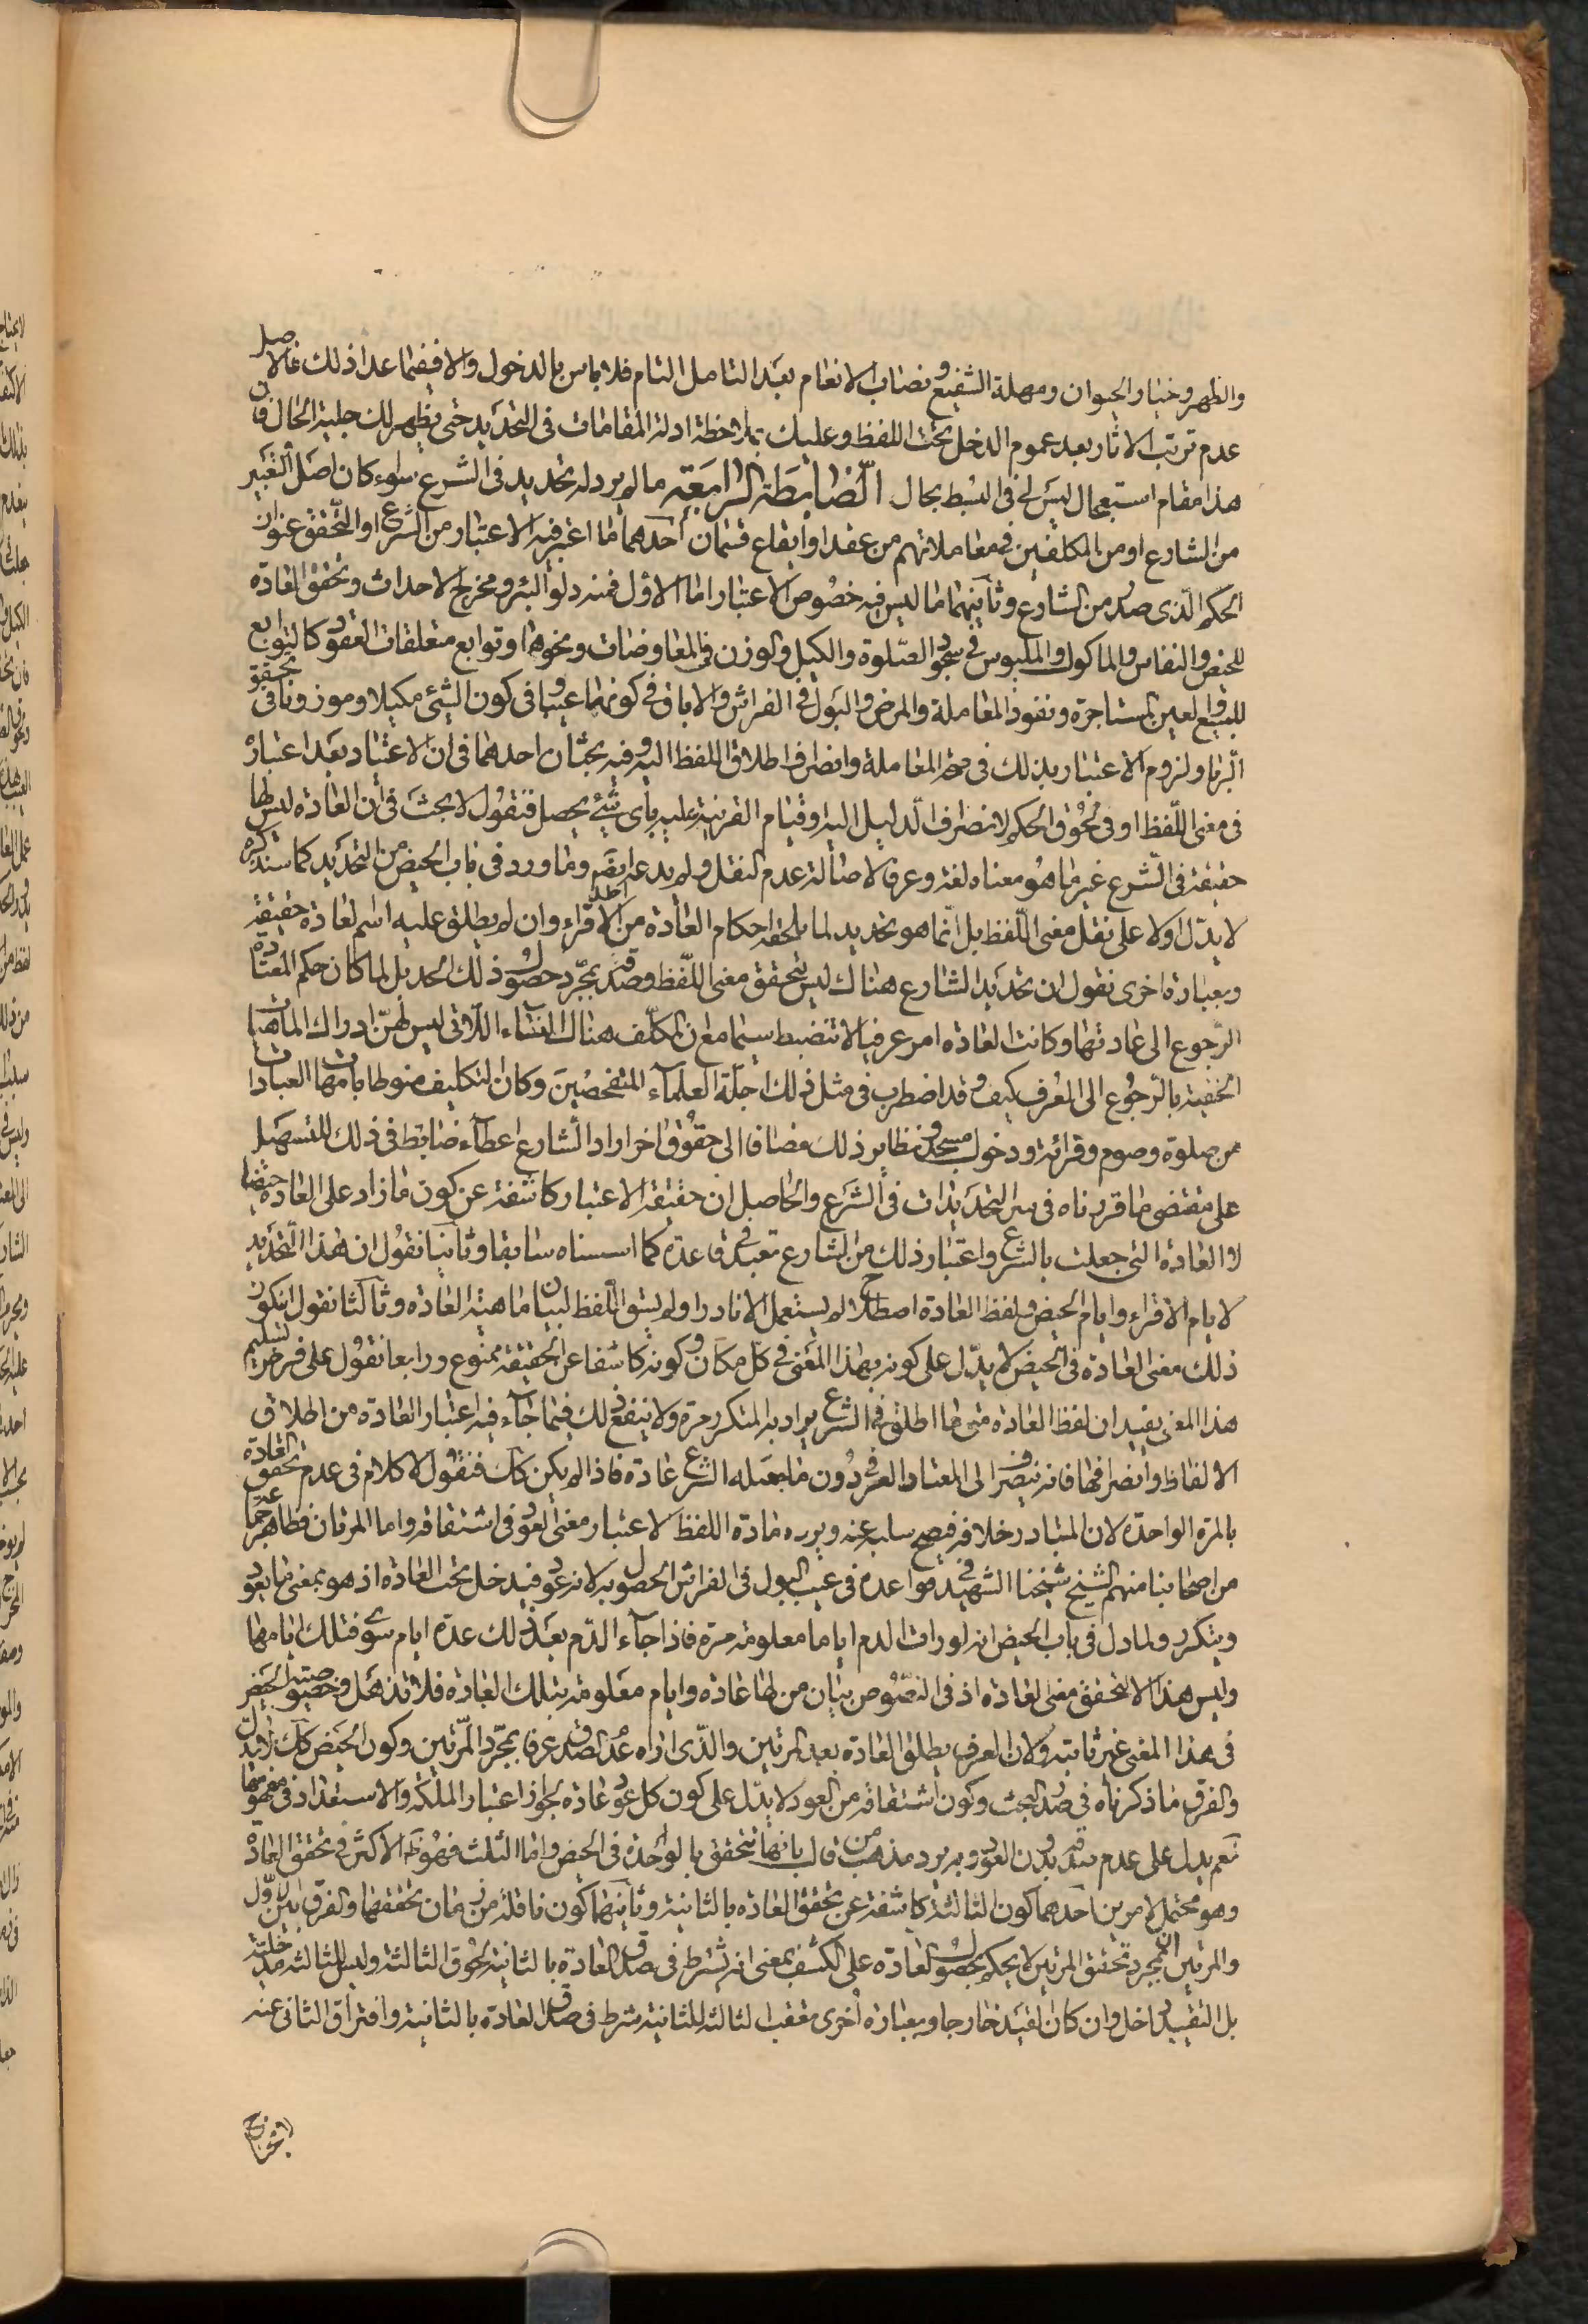 والظهر وخيار الحيوان ومهلة الشفيع ونصاب الانعام بعد التامل التام فلا باس بالدخول والا ففيما عدا ذلك فالاصل
عدم ترتب الاثار بعد عموم الدخل تحت اللفظ وعليك بملاحظة ادلة المقامات فى التحديد حتى يظهر لك جلية الحال فان
هذا مقام استعجال ليس لى فى البسط بجال الضابطة الرابعة ما لم يرد له تحديد فى الشرع سواء كان اصل التغيير
من الشارع او من المكلفين فى معاملاتهم من عقد او ايقاع قسمان احدهما ما اعتبر فيه الاعتبار من الشرع او التحقق عنوان
الحكم الذى صدر من الشارع وثانيهما ما ليس فيه خصوص الاعتبار اما الاول فمنه دلو البئر ومخرج الاحداث وتحقق العادة
للحيض والنفاس والماكول والملبوس فى سجود الصلوة والكيل والوزن فى المعاوضات ونحوها وتوابع متعلقات العقود كالتوابع
للمبيع والعين المستاجرة ونفوذ المعاملة والمرض والبول فى الفراش والاباق فى كونهما عيبا وفى كون الشئ مكيلا وموزونا فى تحقق
الربا ولزوم الاعتبار بذلك فى صحة المعاملة وانصراف اطلاق اللفظ اليه وفيه بحثان احدهما فى ان الاعتياد بعد اعتباره
فى معنى اللفظ او فى لحوق الحكم لانصراف الدليل اليه او قيام القرينة عليه باى شئ يحصل فنقول لا بحث فى ان العادة ليس لها
حقيقة فى الشرع غير ما هو معناه لغة وعرفا لاصالة عدم النقل ولم يدعه احد وما ورد فى باب الحيض من التحديد كما سنذكره
لا يدل اولا على نقل معنى اللفظ بل انما هو تحديد لما يلحقه احكام العادة من الاقراء وان لم يطلق عليه اسم العادة حقيقة
وبعبارة اخرى نقول ان تحديد الشارع هناك ليس لتحقق معنى اللفظ وصدقه بمجرد حصول ذلك الحد بل لما كان حكم المعتادة
الرجوع الى عادتها وكانت العادة امرا عرفيا لا تنضبط سيما مع ان المكلف هناك النساء اللاتى ليس لهن ادراك الماهيات
الخفية بالرجوع الى العرف كيف وقد اضطرب فى مثل ذلك اجلة العلماء المتفحصين وكان التكليف منوطا بامهات العبادات
من صلوة وصوم وقرائة ودخول مسجد ونظاير ذلك مضافا الى حقوق اخر اراد الشارع اعطاء ضابط فى ذلك للتسهيل
على مقتضى ما قررناه فى سر التحديدات فى الشرع والحاصل ان حقيقة الاعتبار كاشفة عن كون ما زاد على العادة حيضا
لا العادة التى جعلت بالشرع واعتبار ذلك من الشارع تعبد فى قاعدة كما اسسناه سابقا وثانيا نقول ان هذا التحديد
لايام الاقراء وايام الحيض ولفظ العادة اصطلاح لم يستعمل الا نادرا ولم يسق اللفظ لبيان ماهية العادة وثالثا نقول ان كون
ذلك معنى العادة فى الحيض لا يدل على كونه بهذا المعنى فى كل مكان وكونه كاشفا عن الحقيقة ممنوع ورابعا نقول على فرض تسليم
هذا المعنى يفيد ان لفظ العادة متى ما اطلق فى الشرع يراد به المتكرر مرة ولا ينفع ذلك فيما جاء فيه اعتبار العادة من اطلاق
الالفاظ وانصرافها فانه ينصرف الى المعتاد العرفى دون ما جعله الشرع عادة فاذا لم يكن كك فنقول لا كلام فى عدم تحقق العادة
بالمرة الواحدة لان المتبادر خلافه فيصح سلبه عنه ويرده مادة اللفظ لاعتبار معنى العود فى اشتقاقه واما المرتان فظاهر جماعة
من اصحابنا منهم الشيخ شيخنا الشهيد فى قواعده فى عيب البول فى الفراش الحصول به لانه عود فيدخل تحت العادة اذ هو بمعنى ما يعود
ويتكرر ولما دل فى باب الحيض انه لو رات الدم اياما معلومة مرة فاذا جاء الدم بعد ذلك عدة ايام سوى فتلك ايامها
وليس هذا الا لتحقق معنى العادة اذ فى النصوص بيان من لها عادة وايام معلومة بتلك العادة فلا تذهل وخصوصية الحيض
فى هذا المعنى غير ثابتة ولان العرف يطلق العادة بعد المرتين والذى اراه عدم الصدق عرفا بمجرد المرتين وكون الحيض كك لا يدل
والفرق ما ذكرناه فى صدر البحث وكون اشتقاقه من العود لا يدل على كون كل عود عادة لجواز اعتبار الملكة والاستعداد فى مفهومها
نعم يدل على عدم صدقه بدون العود وبه يرد مذهب من قال بانها تتحقق بالواحدة فى الحيض واما الثلث فهو ظ الاكثر فى تحقق العادة
وهو محتمل لامرين احدهما كون الثالثة كاشفة عن تحقق العادة بالثانية وثانيهما كون ناقلة من زمان تحققها والفرق بين الاول
والمرتين ان بمجرد تحقق المرتين لا يحكم بحصول العادة على الكشف بمعنى انه يشترط فى صدق العادة بالثانية لحوق الثالثة وليس للثالثة مدخلية
بل التقييد داخل وان كان القيد خارجا وبعبارة اخرى تعقب الثالثة للثانية شرط فى صدق العادة بالثانية وافتراق الثانى عنه